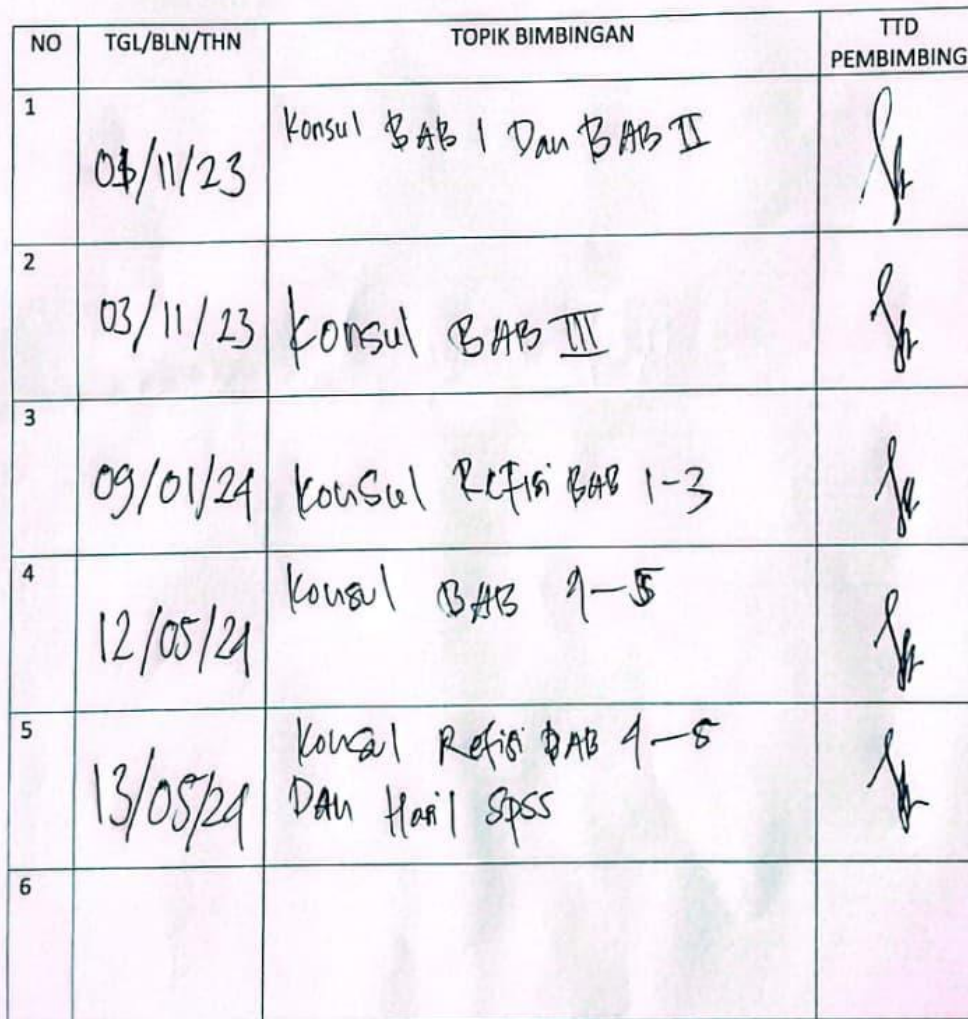 NO TGL/BLN/THN TOPIK BIMBINGAN TTD
PEMBIMBING
1
01/11/23 Konsul BAB I Dan BAB II
2
03/11/23 Konsul BAB III
3
09/01/24 Konsul Refisi BAB 1-3
4
12/05/24 Konsul BAB 4-5
5
13/05/24 Konsul Refisi BAB 4-5
Dan Hasil SPSS
6